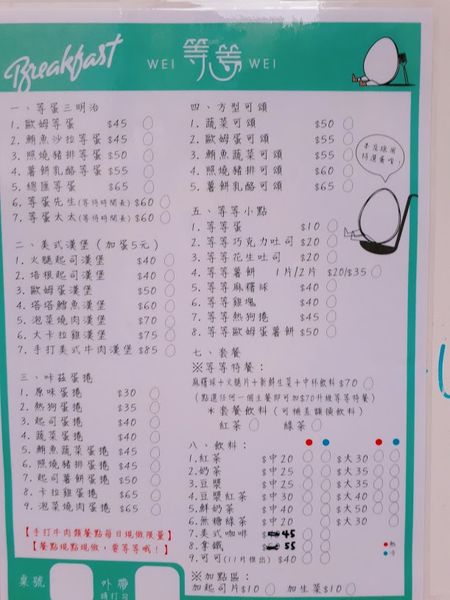 Breakfast
WEI 等等 WEI
一、等蛋三明治
1. 歐姆等蛋 $45
2. 鮪魚沙拉等蛋 $45
3. 照燒豬排等蛋 $50
4. 薯餅乳酪等蛋 $55
5. 總匯等蛋 $65
6. 等蛋先生(等待時間長) $60
7. 等蛋太太(等待時間長) $60
二、美式漢堡 (加蛋5元)
1. 火腿起司漢堡 $40
2. 培根起司漢堡 $40
3. 歐姆蛋漢堡 $50
4. 塔塔鱈魚漢堡 $60
5. 泡菜燒肉漢堡 $70
6. 大卡拉雞漢堡 $75
7. 手打美式牛肉漢堡 $85
三、咔茲蛋捲
1. 原味蛋捲 $30
2. 熱狗蛋捲 $35
3. 起司蛋捲 $40
4. 蔬菜蛋捲 $40
5. 鮪魚蔬菜蛋捲 $45
6. 照燒豬排蛋捲 $45
7. 起司薯餅蛋捲 $50
8. 卡拉雞蛋捲 $65
9. 泡菜燒肉蛋捲 $65
【手打牛肉類餐點每日現做限量】
【餐點現點現做,要等等哦!】
桌號
外帶
請打勾
四、方型可頌
1. 蔬菜可頌 $50
2. 歐姆蛋可頌 $55
3. 鮪魚蔬菜可頌 $55
4. 照燒豬排可頌 $60
5. 薯餅乳酪可頌 $65
本店採用
特選蛋唷!
五、等等小點
1. 等等蛋 $10
2. 等等巧克力吐司 $20
3. 等等花生吐司 $20
4. 等等薯餅 1片/2片 $20/$35
5. 等等麻糬球 $40
6. 等等雞塊 $40
7. 等等熱狗捲 $45
8. 等等歐姆蛋薯餅 $50
七、套餐
※等等特餐:
麻糬球+火腿片+新鮮生菜+中杯飲料 $70
(點選任何一個主餐即可加$70升級等等特餐)
*套餐飲料(可補差額換飲料)
紅茶 綠茶
八、飲料:
1. 紅茶 $中20 $大30
2. 奶茶 $中25 $大35
3. 豆漿 $中25 $大35
4. 豆漿紅茶 $中30 $大40
5. 鮮奶茶 $中40 $大50
6. 無糖綠茶 $中20 $大30
7. 美式咖啡 45
8. 拿鐵 55
9. 可可(11月推出) $40 $大50
熱
冷
※加點區:
加起司片$10 加生菜$10